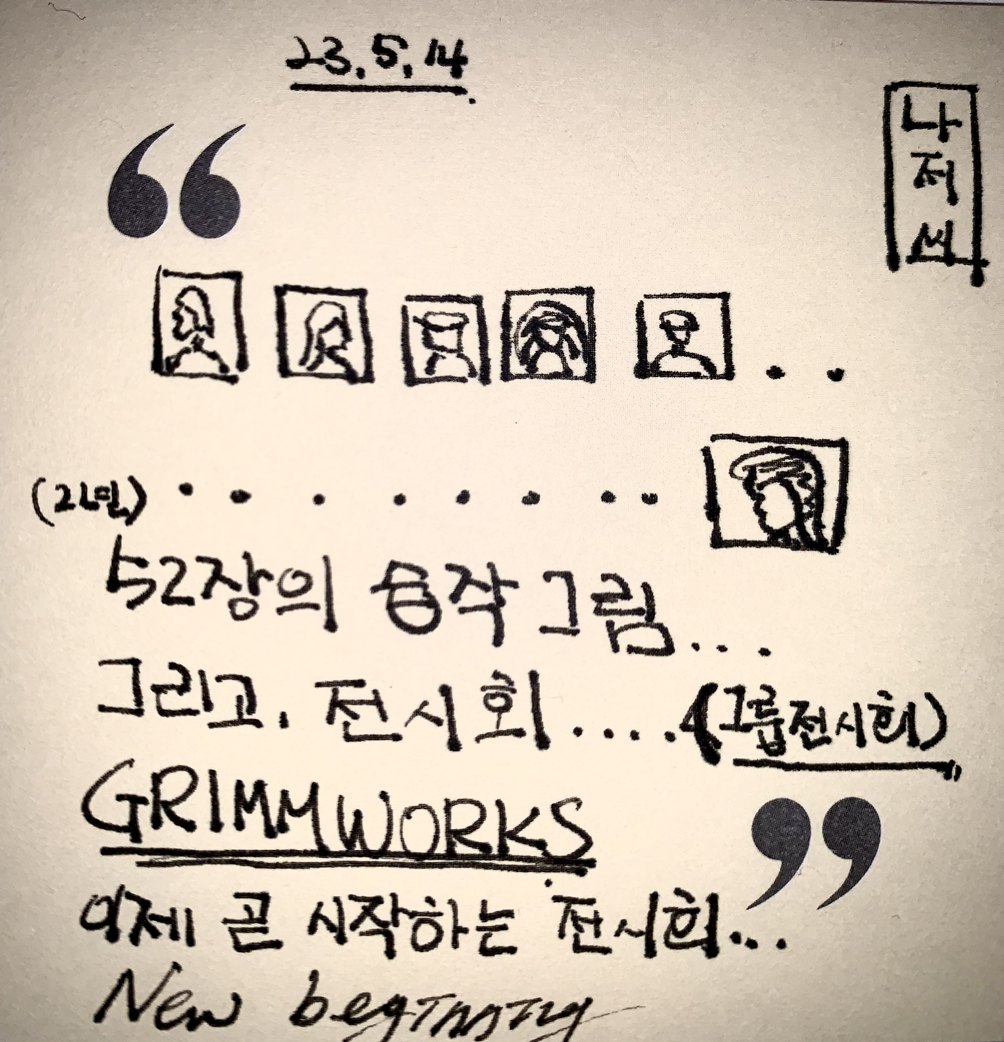 23.5.14
나
저
씨
“
(2년)
52장의 습작 그림...
그리고, 전시회.....(그룹전시회)
GRIMMWORKS
”
이제 곧 시작하는 전시회...
New beginning